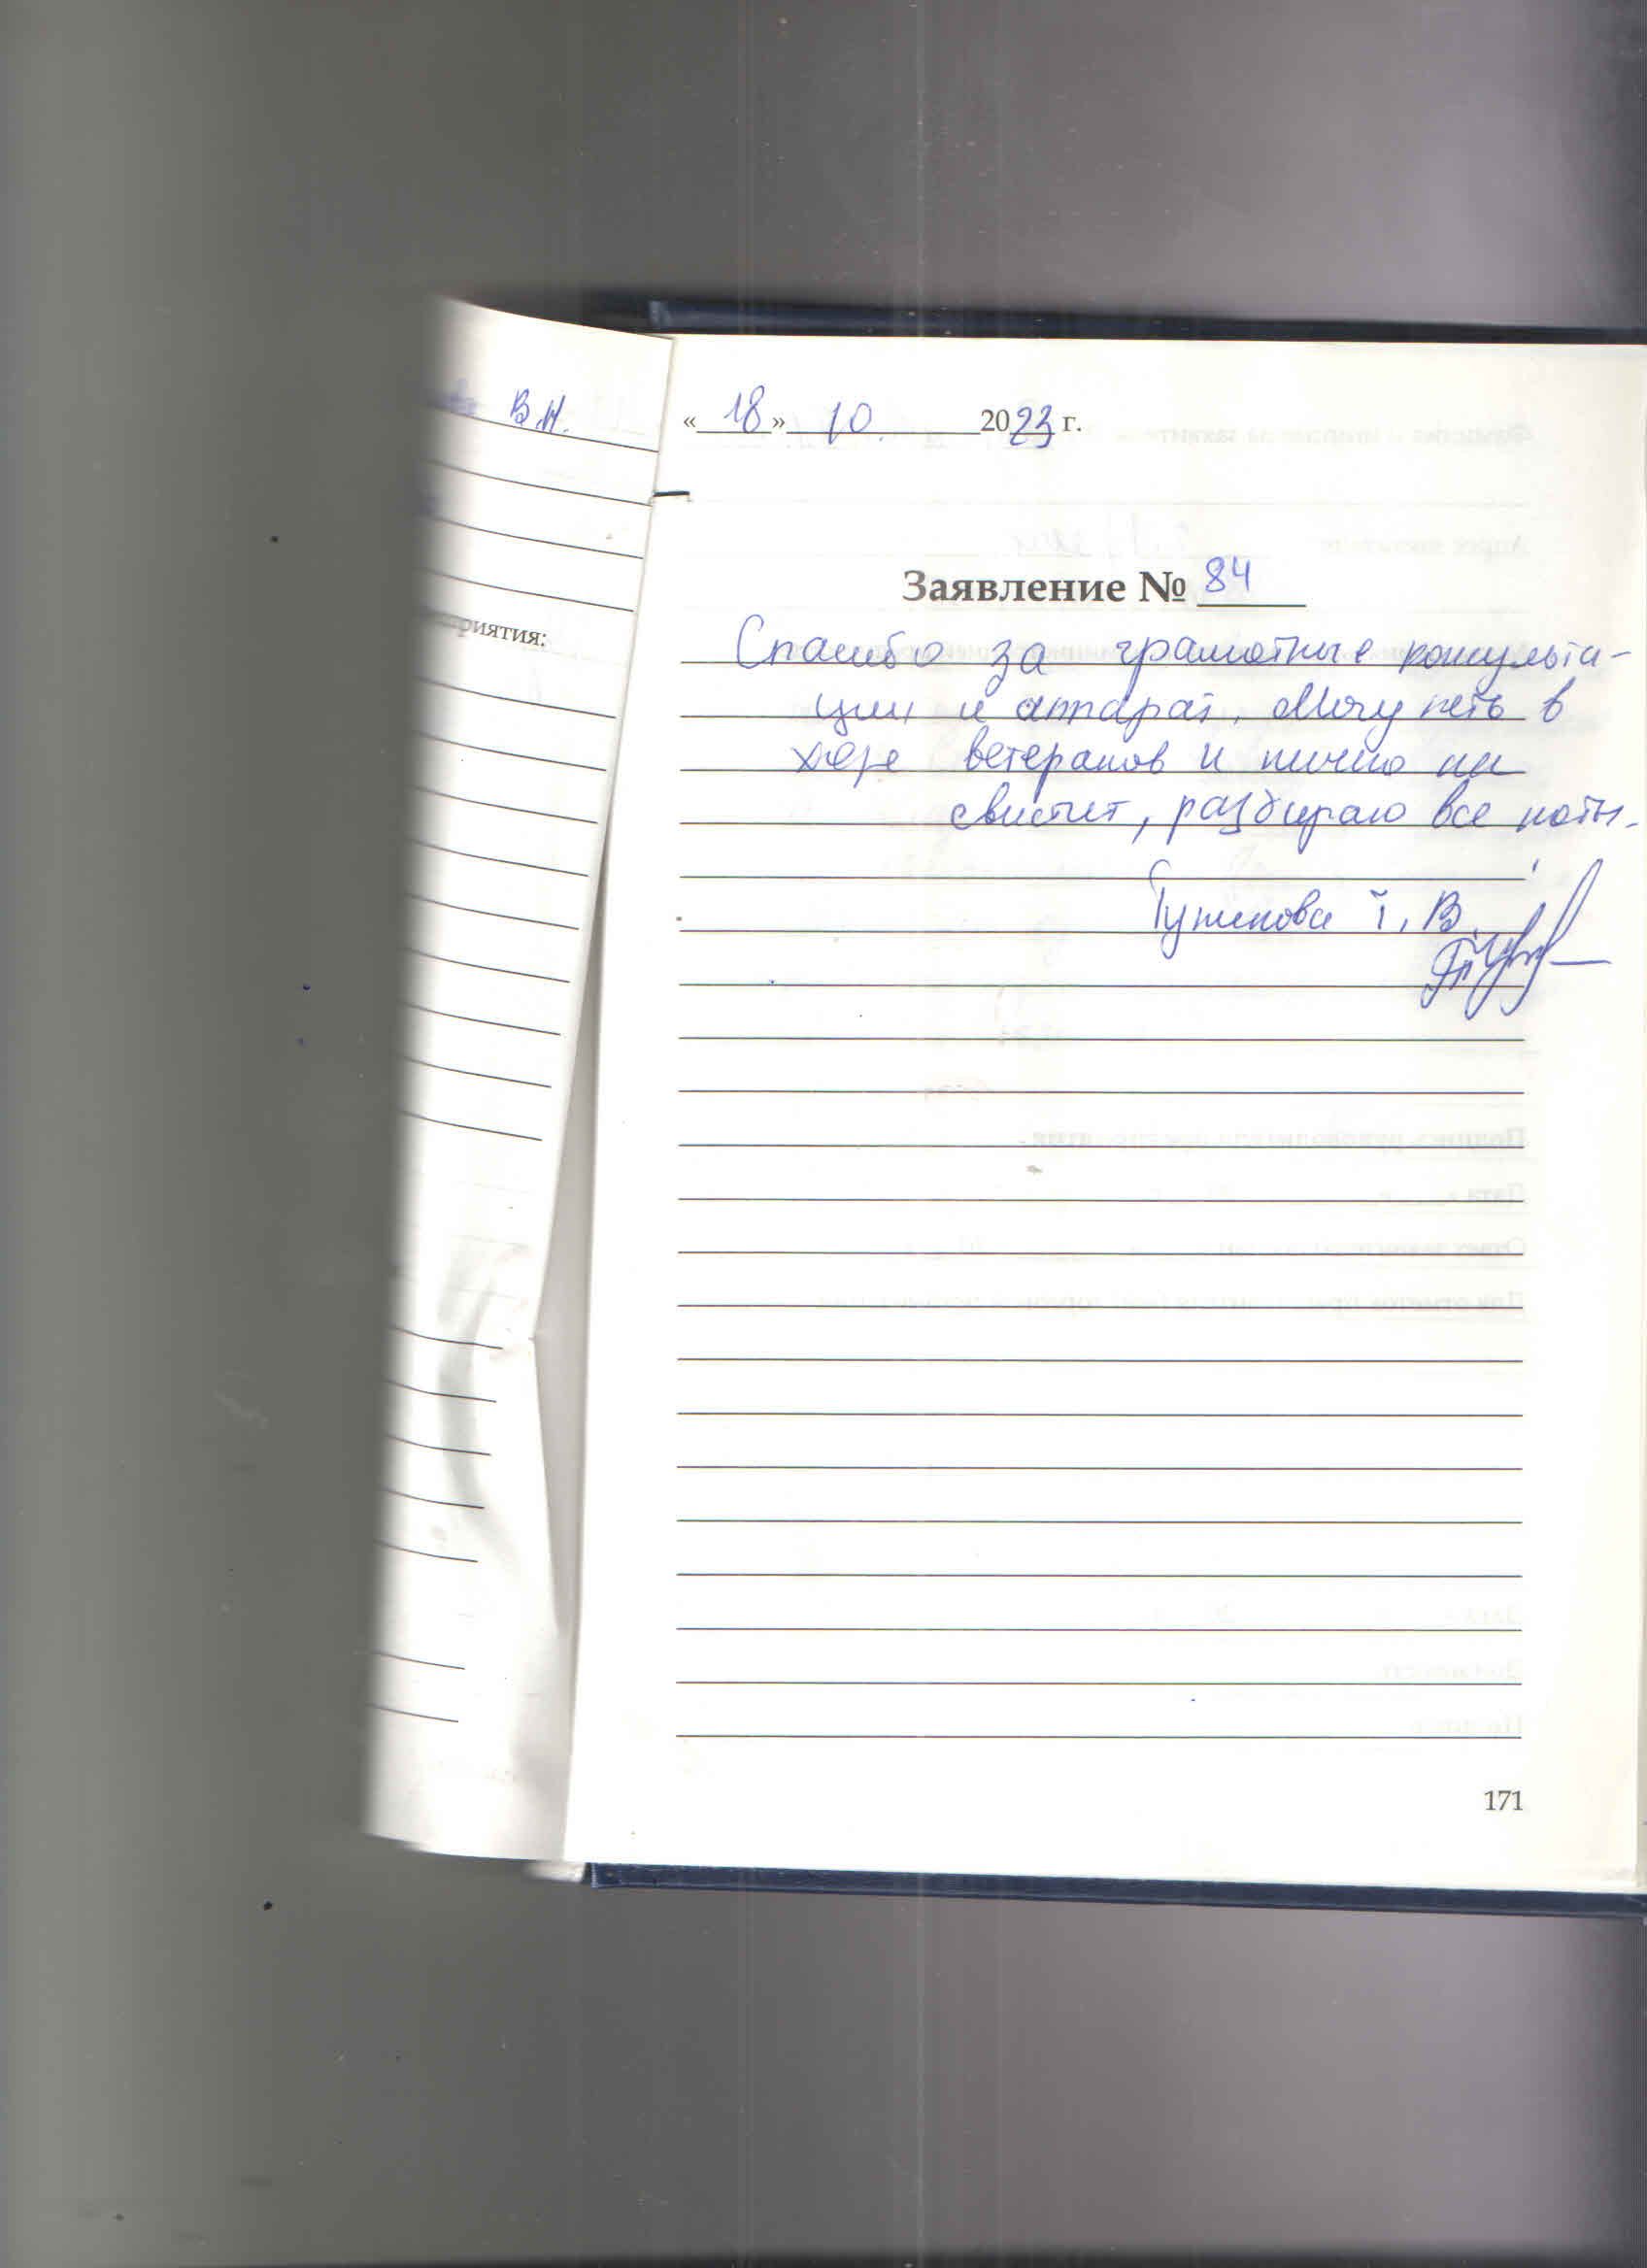 В.Н.
приятия:
« 18 » 10. 2023 г.
Заявление № 84
Спасибо за грамотные консульта-
ции и аппарат. Могу петь в
хоре ветеранов и ничего не
свистит, разбираю все ноты.
Т. В.
171